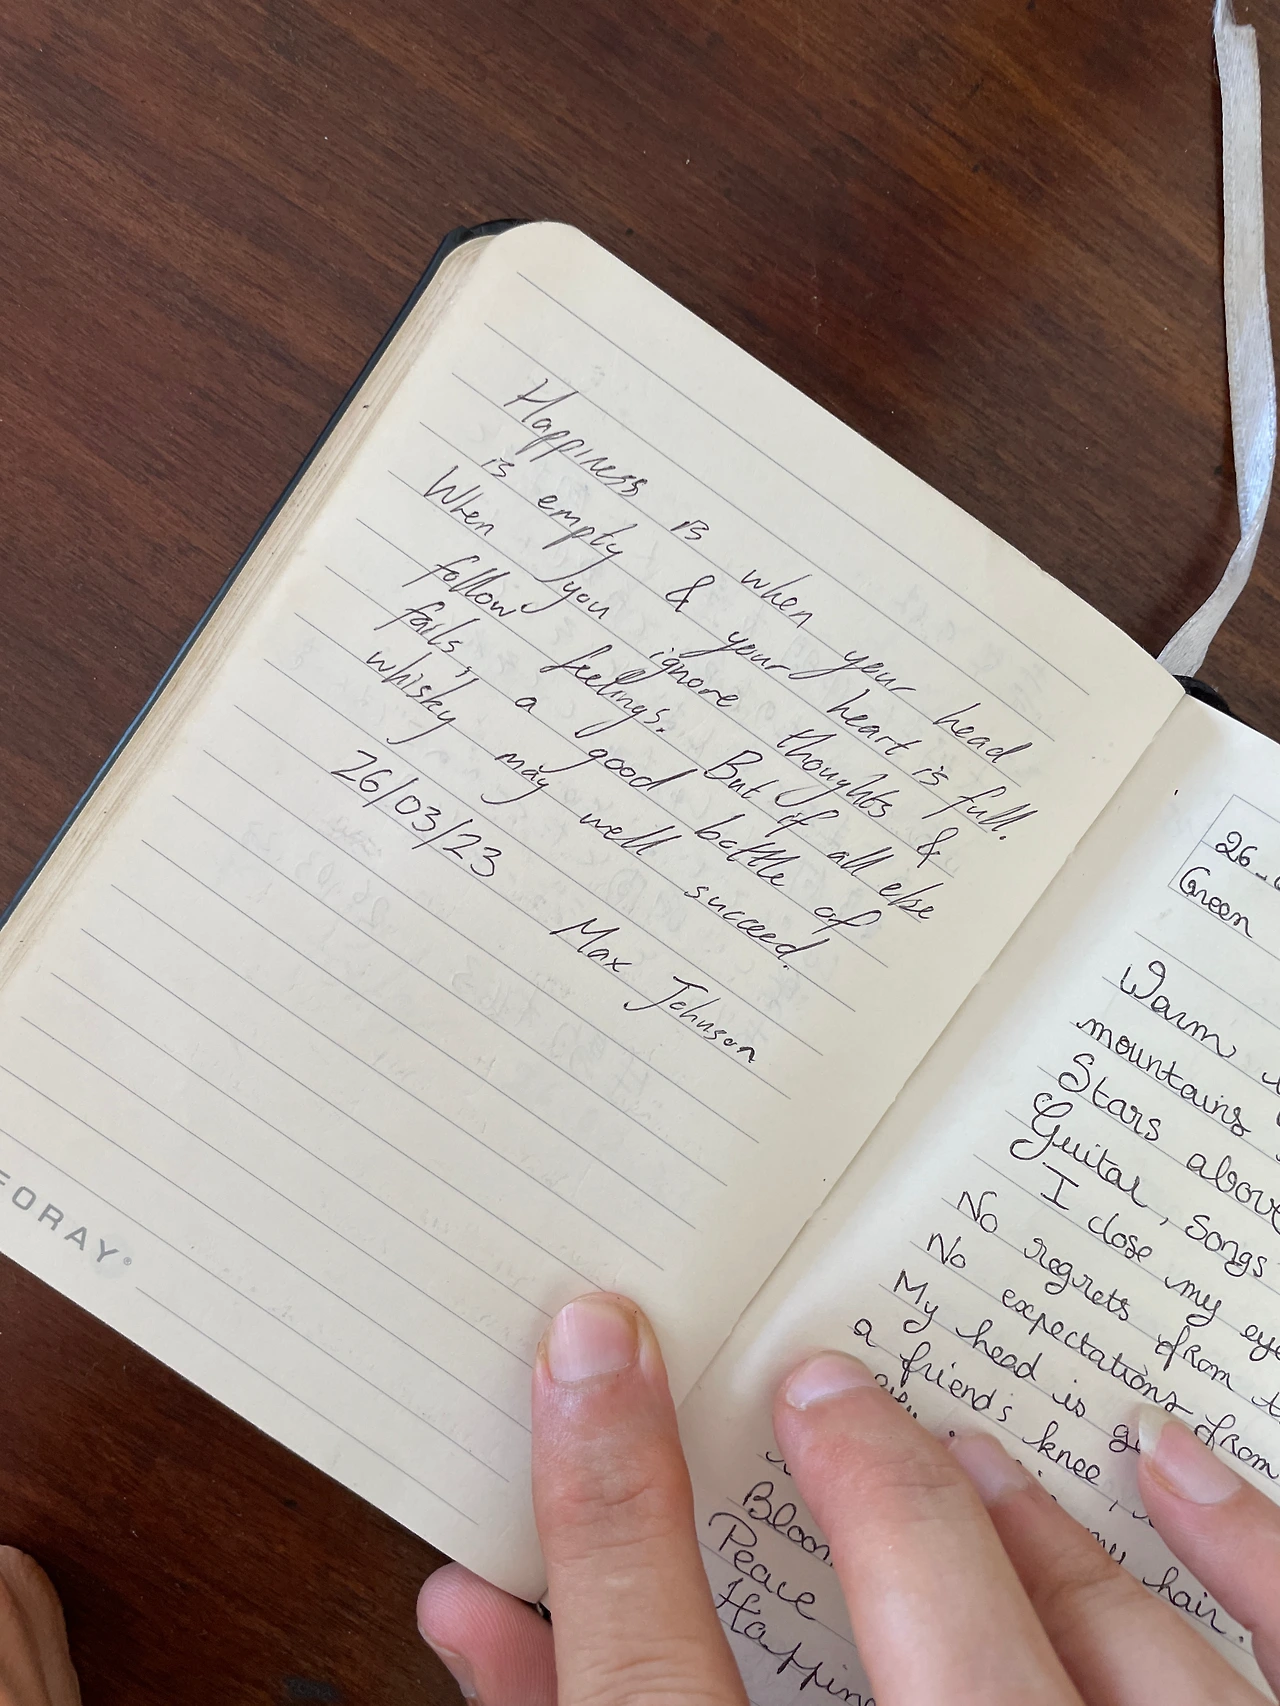 Happiness is when your head
is empty & your heart is full.
When you ignore thoughts &
follow feelings. But if all else
fails, a good bottle of
whisky may well succeed.
26/03/23
Max Johnson
FORAY®
26
Green
Warm
mountains
Stars above
Guitar, songs
I close my eye
No regrets from
No expectations from
My head is
a friend's knee,
my hair.
Bloom
Peace
Happine